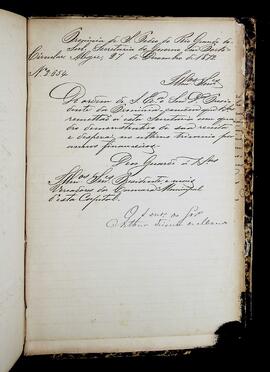 Provincia de S. Pedro do Rio Grande do
Sul, Secretaria do Governo em Porto
Circular Alegre, 27 de Dezembro de 1872
Nº 2854
Illmos Snrs
De ordem de S. Exª o Snr Dor Presi-
dente da Provincia,
remettão a esta Secretaria um qua-
dro demonstrativo de sua receita
e despeza, no ultimo triennio por
annos financeiros.
Deos Guarde a VSas
Illmos Snrs Presidente e mais
Vereadores da Camara Municipal
desta Capital.